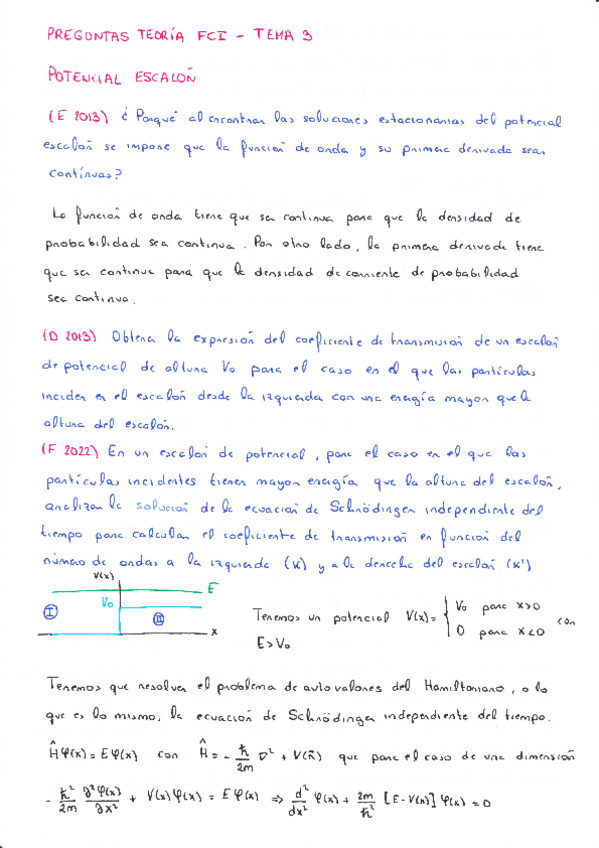 PREGUNTAS TEORÍA FCI - TEMA 3
POTENCIAL ESCALÓN
(E 2013) ¿Porqué al encontrar las soluciones estacionarias del potencial
escalón se impone que la función de onda y su primera derivada sean
contínuas?
La función de onda tiene que ser continua para que la densidad de
probabilidad sea continua. Por otro lado, la primera derivada tiene
que ser continua para que la densidad de corriente de probabilidad
sea continua.
(D 2013) Obtena la expresión del coeficiente de transmisión de un escalón
de potencial de altura V₀ para el caso en el que las partículas
inciden en el escalón desde la izquierda con una energía mayor que la
altura del escalón.
(F 2022) En un escalón de potencial, para el caso en el que las
partículas incidentes tienen mayor energía que la altura del escalón,
analizar la solución de la ecuación de Schrödinger independiente del
tiempo para calcular el coeficiente de transmisión en función del
número de ondas a la izquierda (K) y a la derecha del escalón (K')
V(x)
E
V₀
I
II
x
Tenemos un potencial V(x) = { V₀ para x>0
0 para x<0 con
E>V₀
Tenemos que resolver el problema de autovalores del Hamiltoniano, o lo
que es lo mismo, la ecuación de Schrödinger independiente del tiempo.
Ĥφ(x) = Eφ(x) con Ĥ = - ℏ/2m ∇² + V(r⃗) que para el caso de una dimensión
- ℏ²/2m ∂²φ(x)/∂x² + V(x)φ(x) = Eφ(x) ⇒ d²/dx² φ(x) + 2m/ℏ² [E-V(x)] φ(x) = 0